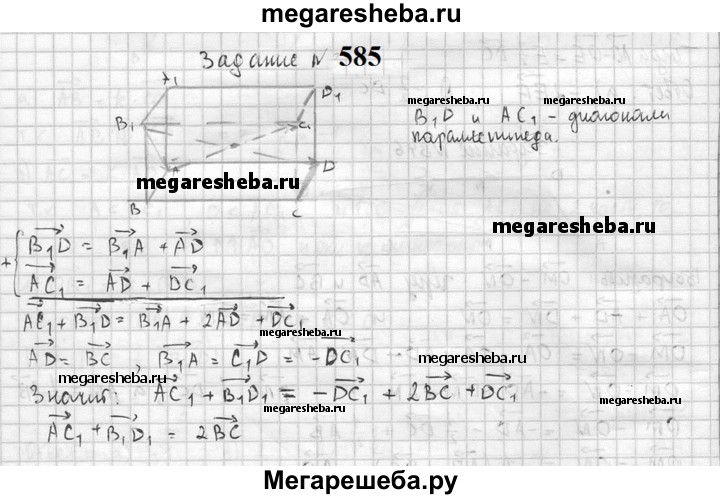 megaresheba.ru
Задание № 585
A₁
D₁
B₁
C₁
A
D
B
C
megaresheba.ru
megaresheba.ru
B₁D и AC₁ - диагонали
параллепипеда.
megaresheba.ru
B₁D = B₁A + AD
+
AC₁ = AD + DC₁
AC₁ + B₁D = B₁A + 2AD + DC₁
megaresheba.ru
AD = BC , B₁A = C₁D = -DC₁
megaresheba.ru
megaresheba.ru
Значит: AC₁ + B₁D₁ = -DC₁ + 2BC + DC₁
megaresheba.ru
AC₁ + B₁D₁ = 2BC
megaresheba.ru
Мегарешеба.ру